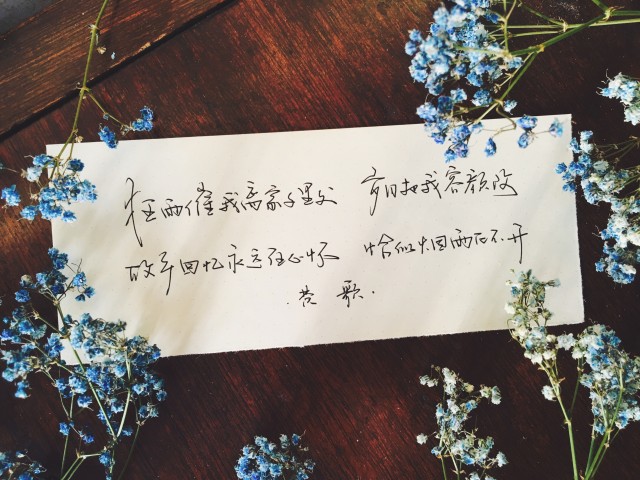 雨催我离家千里外 岁月把我容颜改
故乡回忆永远在心怀 恰似烟雨化不开
歌